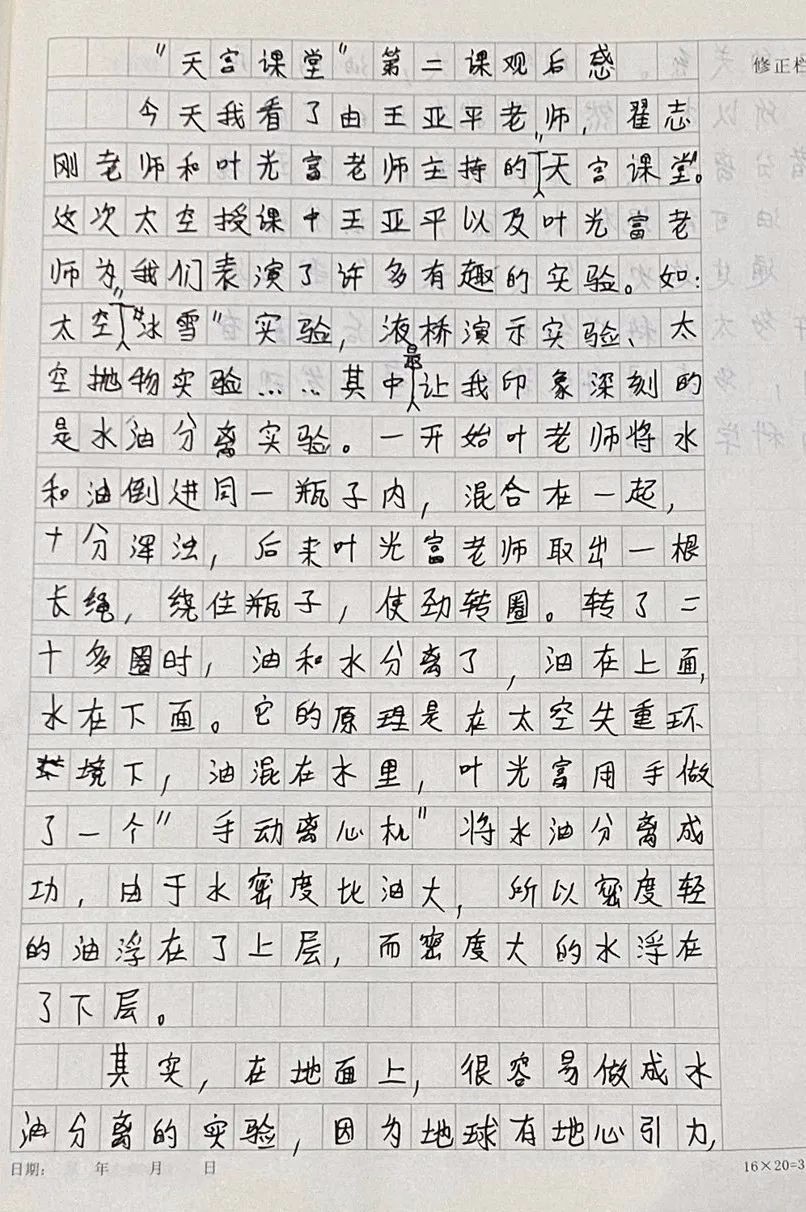 "天宫课堂"第二课观后感
修正栏
今天我看了由王亚平老师，翟志
刚老师和叶光富老师主持的"天宫课堂"。
这次太空授课中王亚平以及叶光富老
师为我们表演了许多有趣的实验。如：
太空"冰雪"实验，液桥演示实验、太
空抛物实验……其中最让我印象深刻的
是水油分离实验。一开始叶老师将水
和油倒进同一瓶子内，混合在一起，
十分浑浊，后来叶光富老师取出一根
长绳，绕住瓶子，使劲转圈。转了二
十多圈时，油和水分离了，油在上面，
水在下面。它的原理是在太空失重环
境下，油混在水里，叶光富用手做
了一个"手动离心机"将水油分离成
功，由于水密度比油大，所以密度轻
的油浮在了上层，而密度大的水浮在
了下层。
其实，在地面上，很容易做成水
油分离的实验，因为地球有地心引力，
日期： 年 月 日
16×20=3